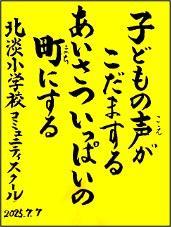 子どもの声が
こだまする
あいさついっぱいの
町にする
北淡小学校コミュニティスクール
2025.7.7